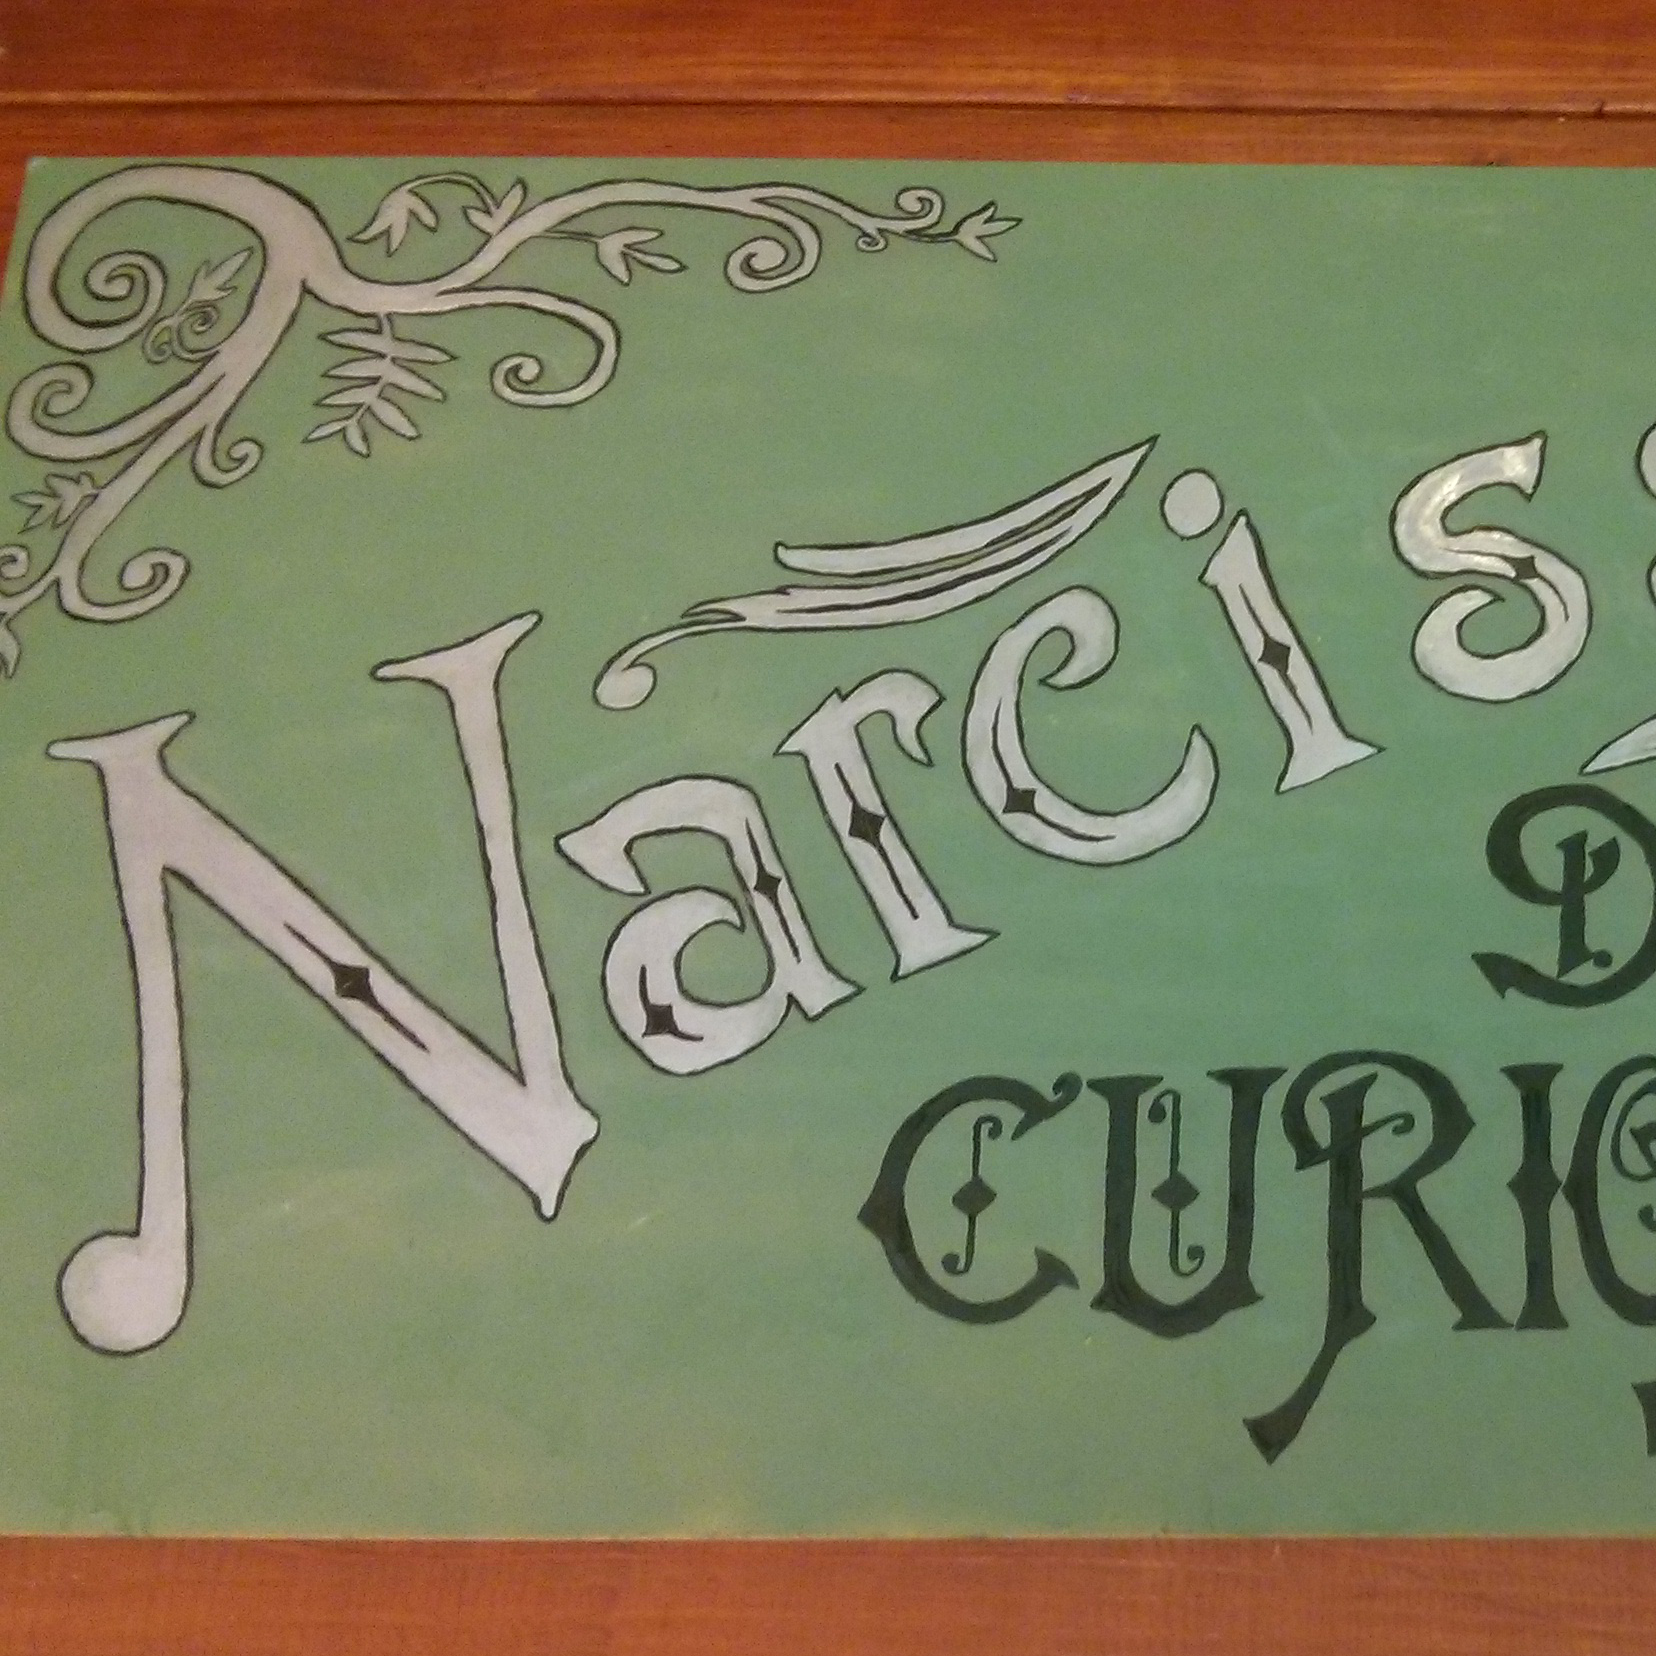 Narcis
D
CURIO